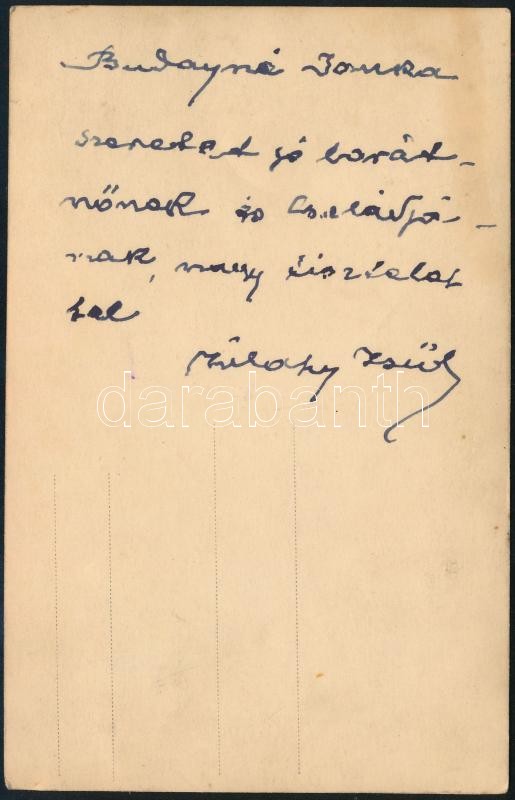 Budayné Ionka
szeretet jó barát-
nőnek és családjá-
nak, nagy tisztelet
tel
Zilahy
darabanth